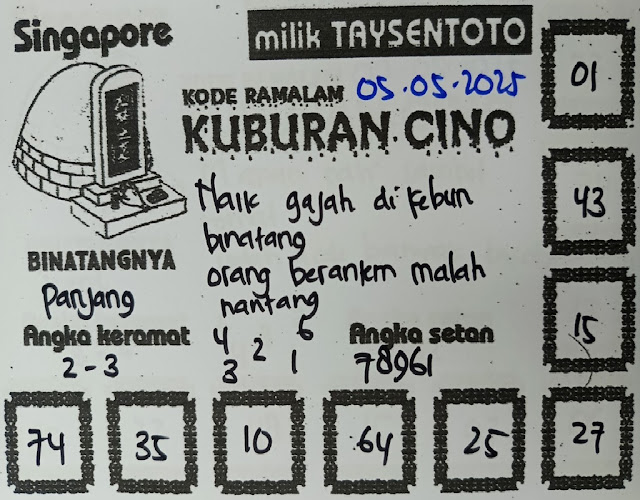 Singapore
milik TAYSENTOTO
KODE RAMALAM 05.05.2025
KUBURAN CINO
Naik gajah di kebun
binatang
orang berantem malah
nantang
BINATANGNYA
Panjang
Angka keramat
2-3
4 6
2
3 1
Angka setan
78961
01
43
15
27
74 35 10 64 25